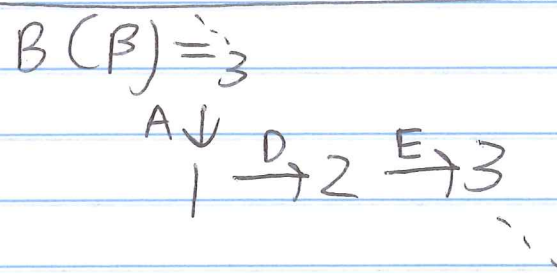 B(β) = ⋱ 3
A ↓
1 D→ 2 E→ 3
⋱